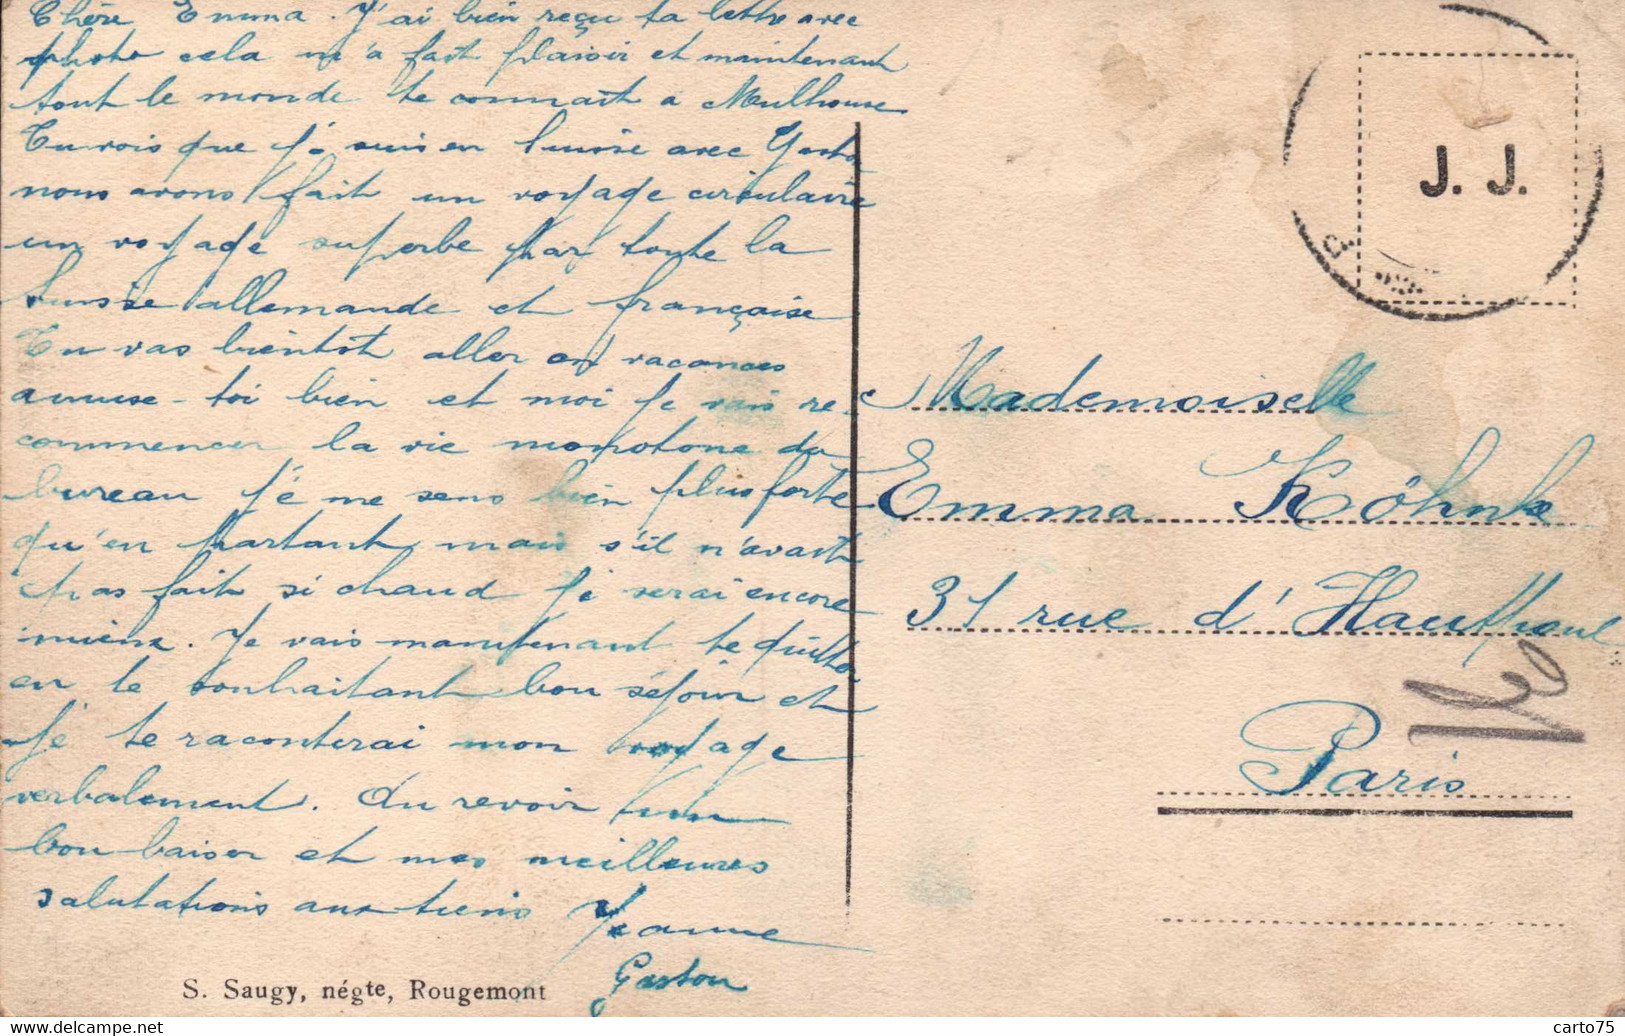 Chère Emma. J'ai bien reçu ta lettre avec
photo cela m'a fait plaisir et maintenant
tout le monde te connait a Mulhouse
Tu vois que je suis en Suisse avec Gaston
nous avons fait un voyage circulaire
un voyage superbe par toute la
Suisse allemande et française
Tu vas bientôt aller en vacances
amuse-toi bien et moi je vais re-
commencer la vie monotone du
bureau je me sens bien plus forte
qu'en partant, mais s'il n'avait
pas fait si chaud je serai encore
mieux. Je vais maintenant te quitter
en te souhaitant bon séjour et
je te raconterai mon voyage
verbalement. Au revoir
bon baiser et mes meilleures
salutations aux tiens Jeanne
Gaston
S. Saugy, négte, Rougemont
J. J.
Mademoiselle
Emma Köhnle
31 rue d'Hautpoul
Paris
carto75